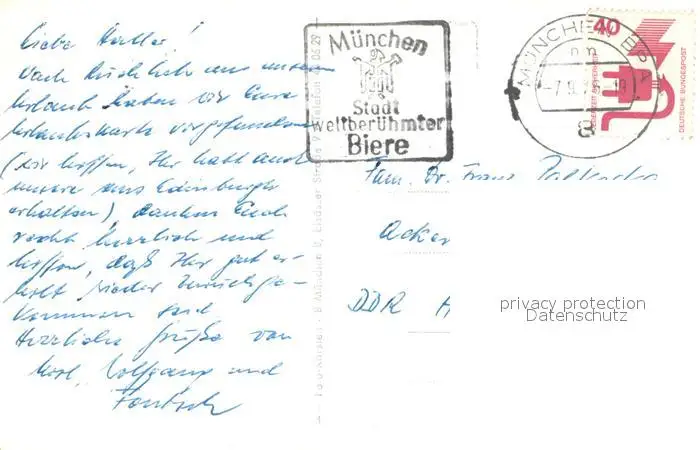 Liebe
Nach Rückkehr aus unserem
Urlaub haben wir Eure
Urlaubskarte vorgefunden
(wir hoffen, Ihr habt auch
unsere aus Edinburgh
erhalten), danken Euch
recht herzlich und
hoffen, daß Ihr gut er-
holt wieder zurückge-
kommen seid
Herzliche Grüße von
Wolfgang und
München
Stadt
weltberühmter
Biere
MÜNCHEN BPA
8
40
DEUTSCHE BUNDESPOST
Fam. Dr. Franz
Acker
DDR H
privacy protection
Datenschutz